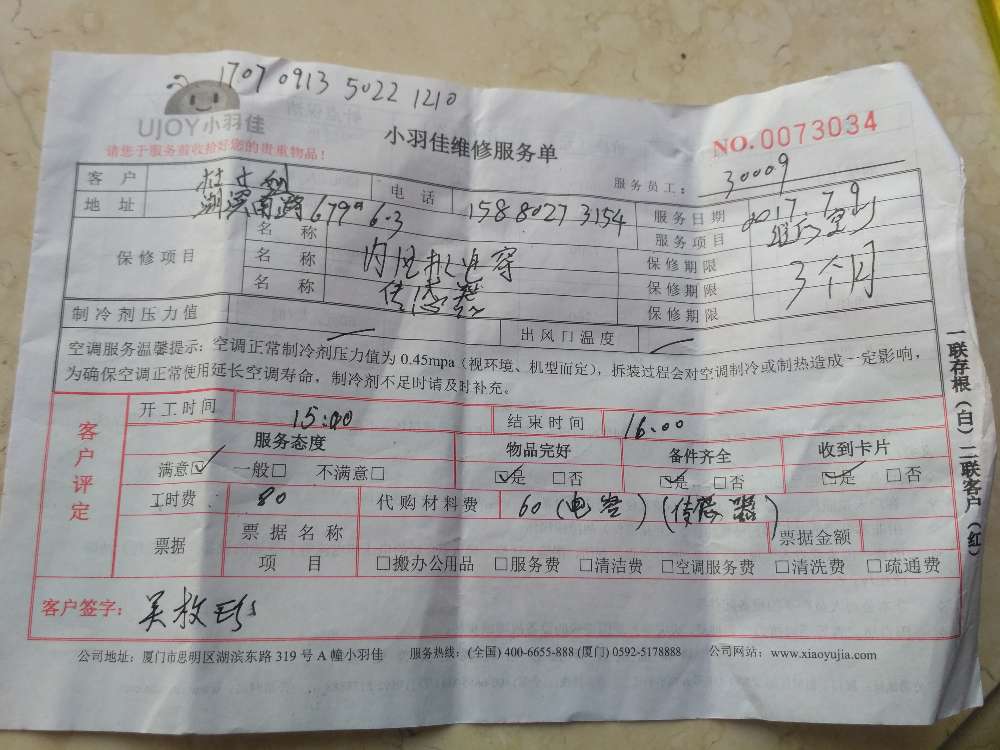 17070913 5022 1210
UJOY小羽佳
小羽佳维修服务单
NO.0073034
请您于服务前收拾好您的贵重物品！
服务员工： 30009
客 户 电 话 15880273154 服务日期 2017.7.9
地 址 湖滨南路679#6-3 服务项目
保修项目 名 称 保修期限
名 称 内风机 电容 保修期限 3个月
名 称 传感器 保修期限
制冷剂压力值 出风口温度
空调服务温馨提示：空调正常制冷剂压力值为 0.45mpa（视环境、机型而定），拆装过程会对空调制冷或制热造成一定影响，
为确保空调正常使用延长空调寿命，制冷剂不足时请及时补充。
客户评定
开工时间 15:00 结束时间 16:00
服务态度 物品完好 备件齐全 收到卡片
满意☑ 一般□ 不满意□ ☑是 □否 ☑是 □否 ☑是 □否
工时费 80 代购材料费 60（电容）（传感器）
票据 票据名称 票据金额
项 目 □搬办公用品 □服务费 □清洁费 □空调服务费 □清洗费 □疏通费
客户签字：
公司地址：厦门市思明区湖滨东路 319 号 A 幢小羽佳 服务热线：(全国) 400-6655-888 (厦门) 0592-5178888 公司网站：www.xiaoyujia.com
一联存根（白）二联客户（红）